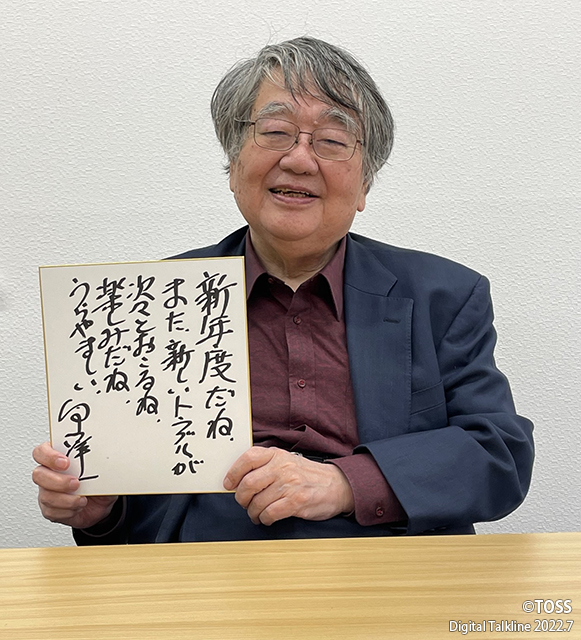 新年度だね、
また、新しいトラブルが
次々とおこるね、
楽しみだね、
うらやましい
向山洋一
©TOSS
Digital Talkline 2022.7